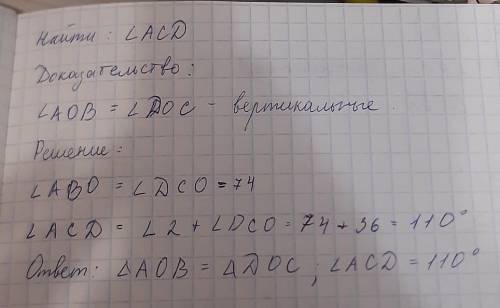 Найти: ∠ACD
Доказательство:
∠AOB = ∠DOC - вертикальные.
Решение:
∠ABO = ∠DCO = 74
∠ACD = ∠2 + ∠DCO = 74 + 36 = 110°
Ответ: △AOB = △DOC; ∠ACD = 110°